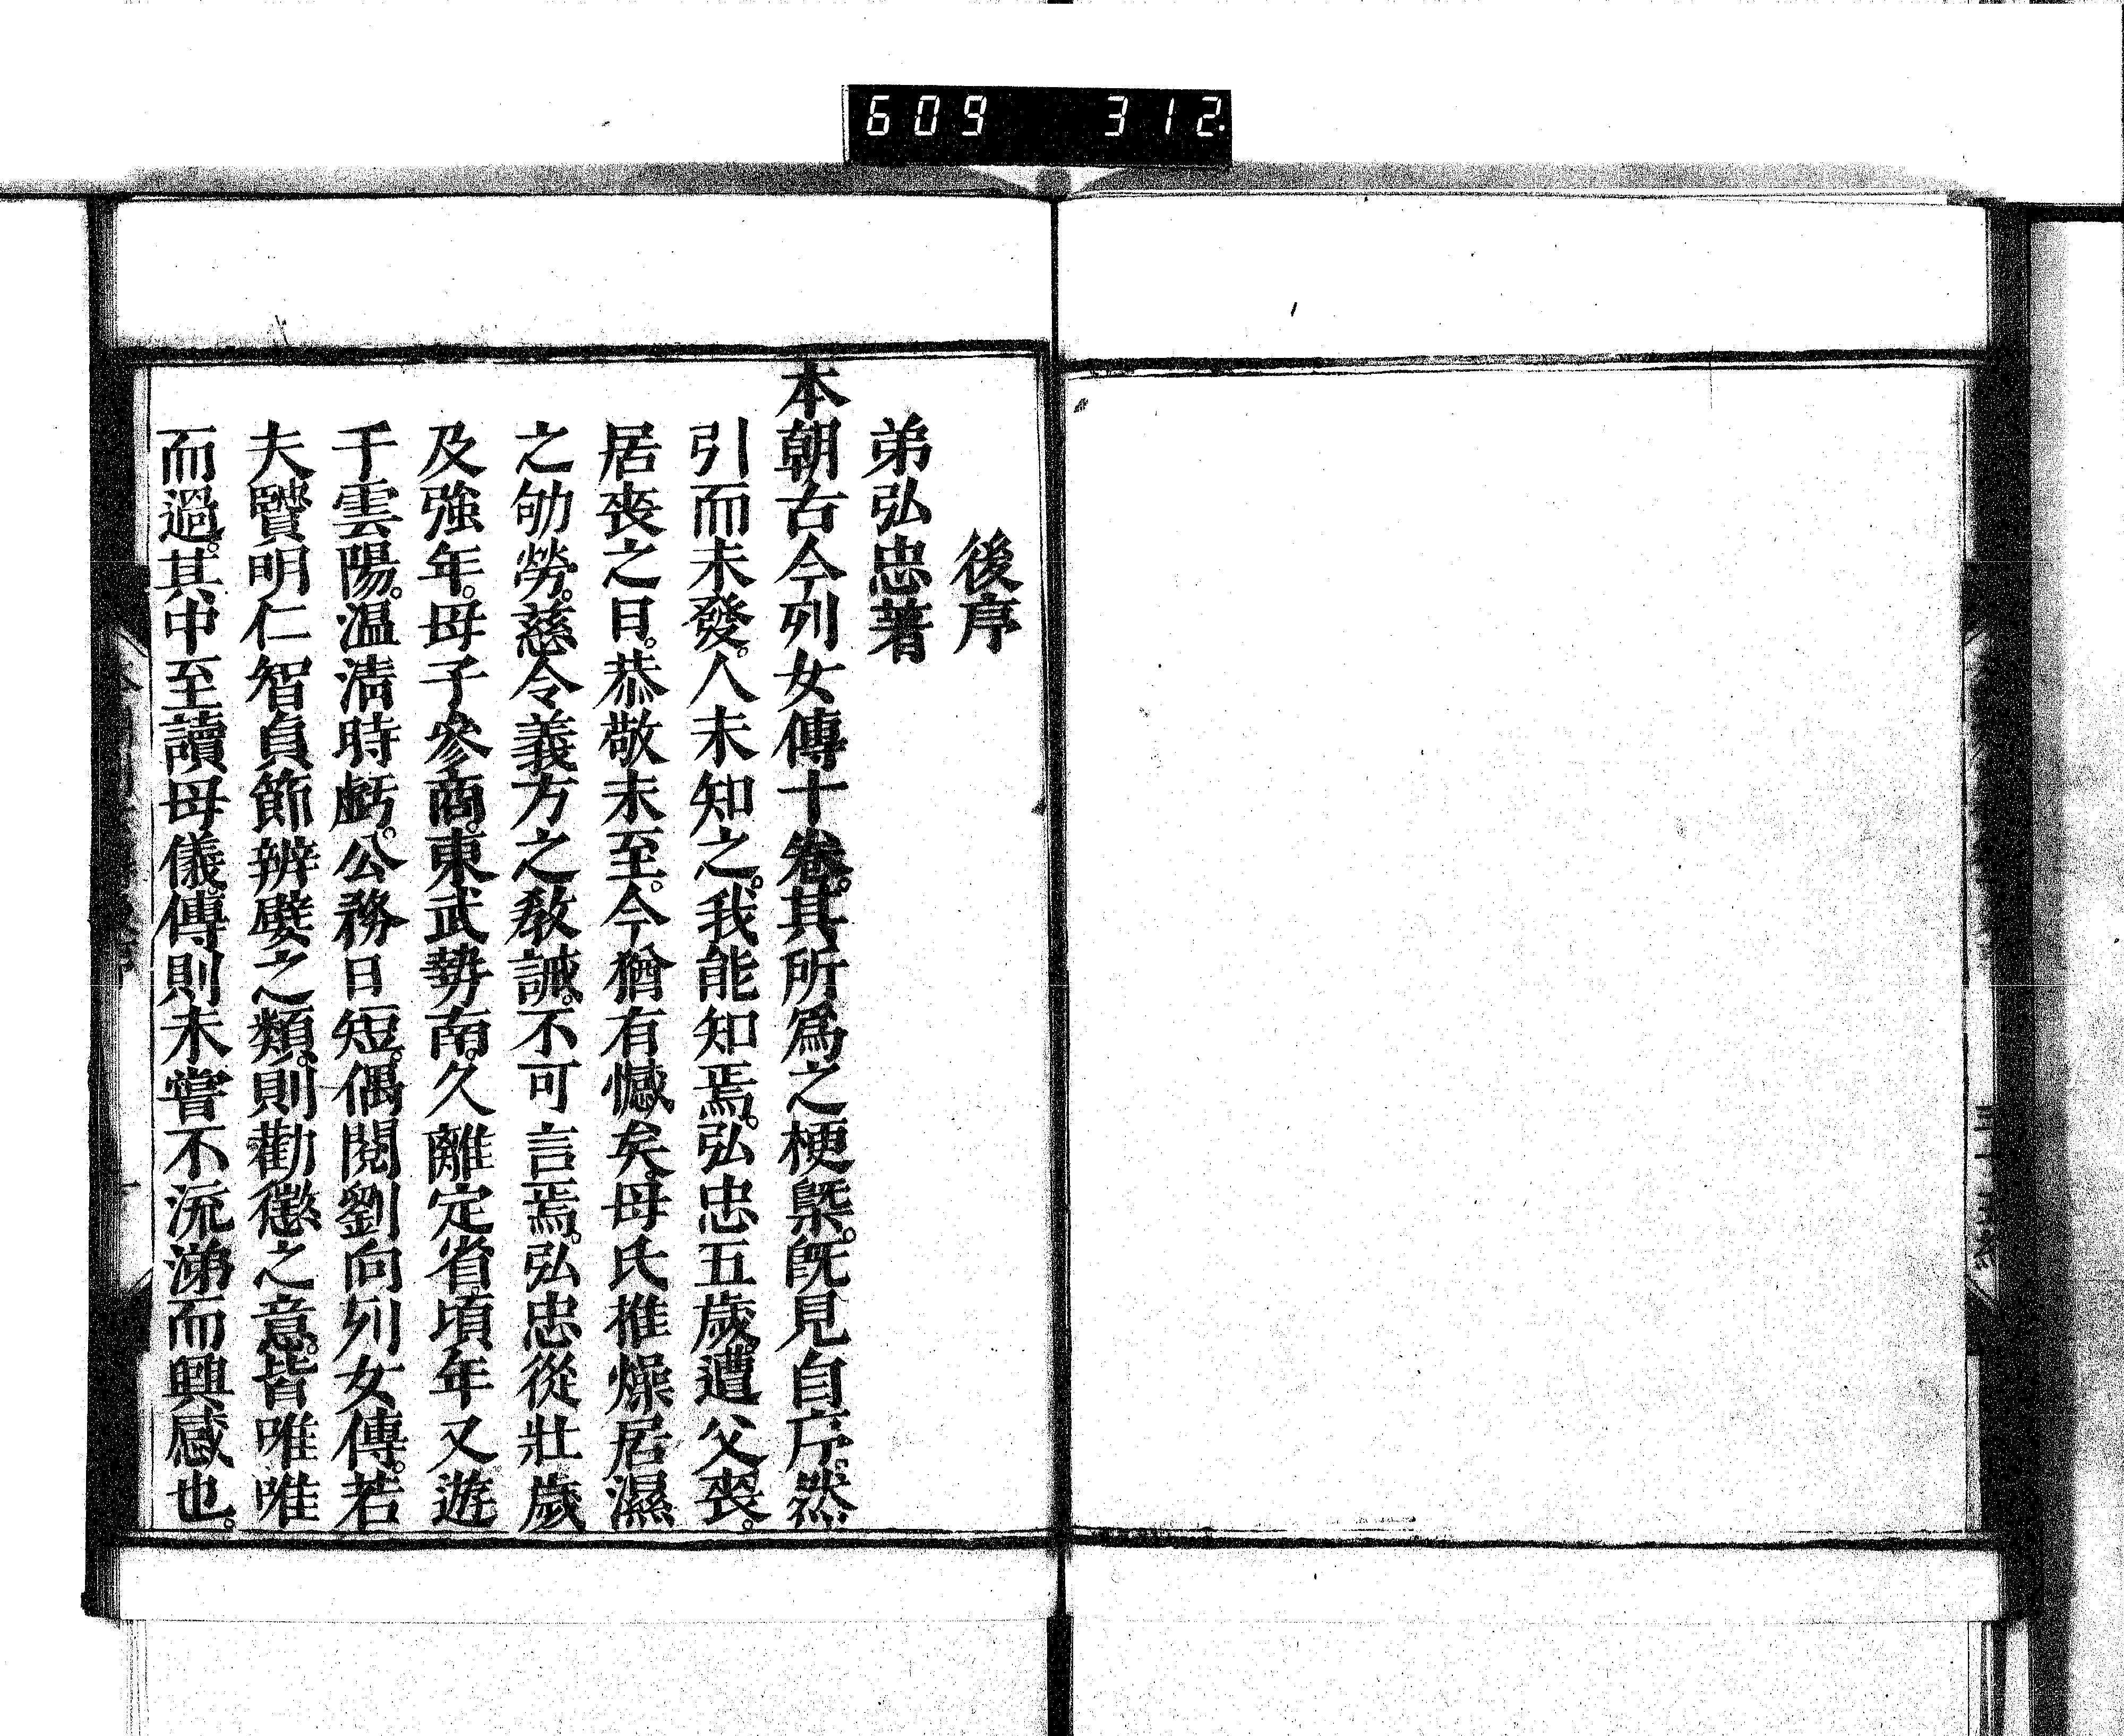 609 312
後序
弟弘忠著
本朝古今列女傳十卷。其所爲之梗槩。既見自序。然
引而未發。人未知之。我能知焉。弘忠五歲遭父喪。
居喪之日。恭敬未至。今猶有憾矣。母氏推燥居濕
之劬勞。慈令義方之敎誡。不可言焉。弘忠從壯歲
及強年。母子參商。東武勢南。久離定省。頃年又遊
于雲陽。温凊時虧。公務日短。偶閱劉向列女傳。若
夫賢明仁智貞節辨嬖之類。則勸懲之意。皆唯唯
而過。其中至讀母儀傳則未嘗不流涕而興感也。